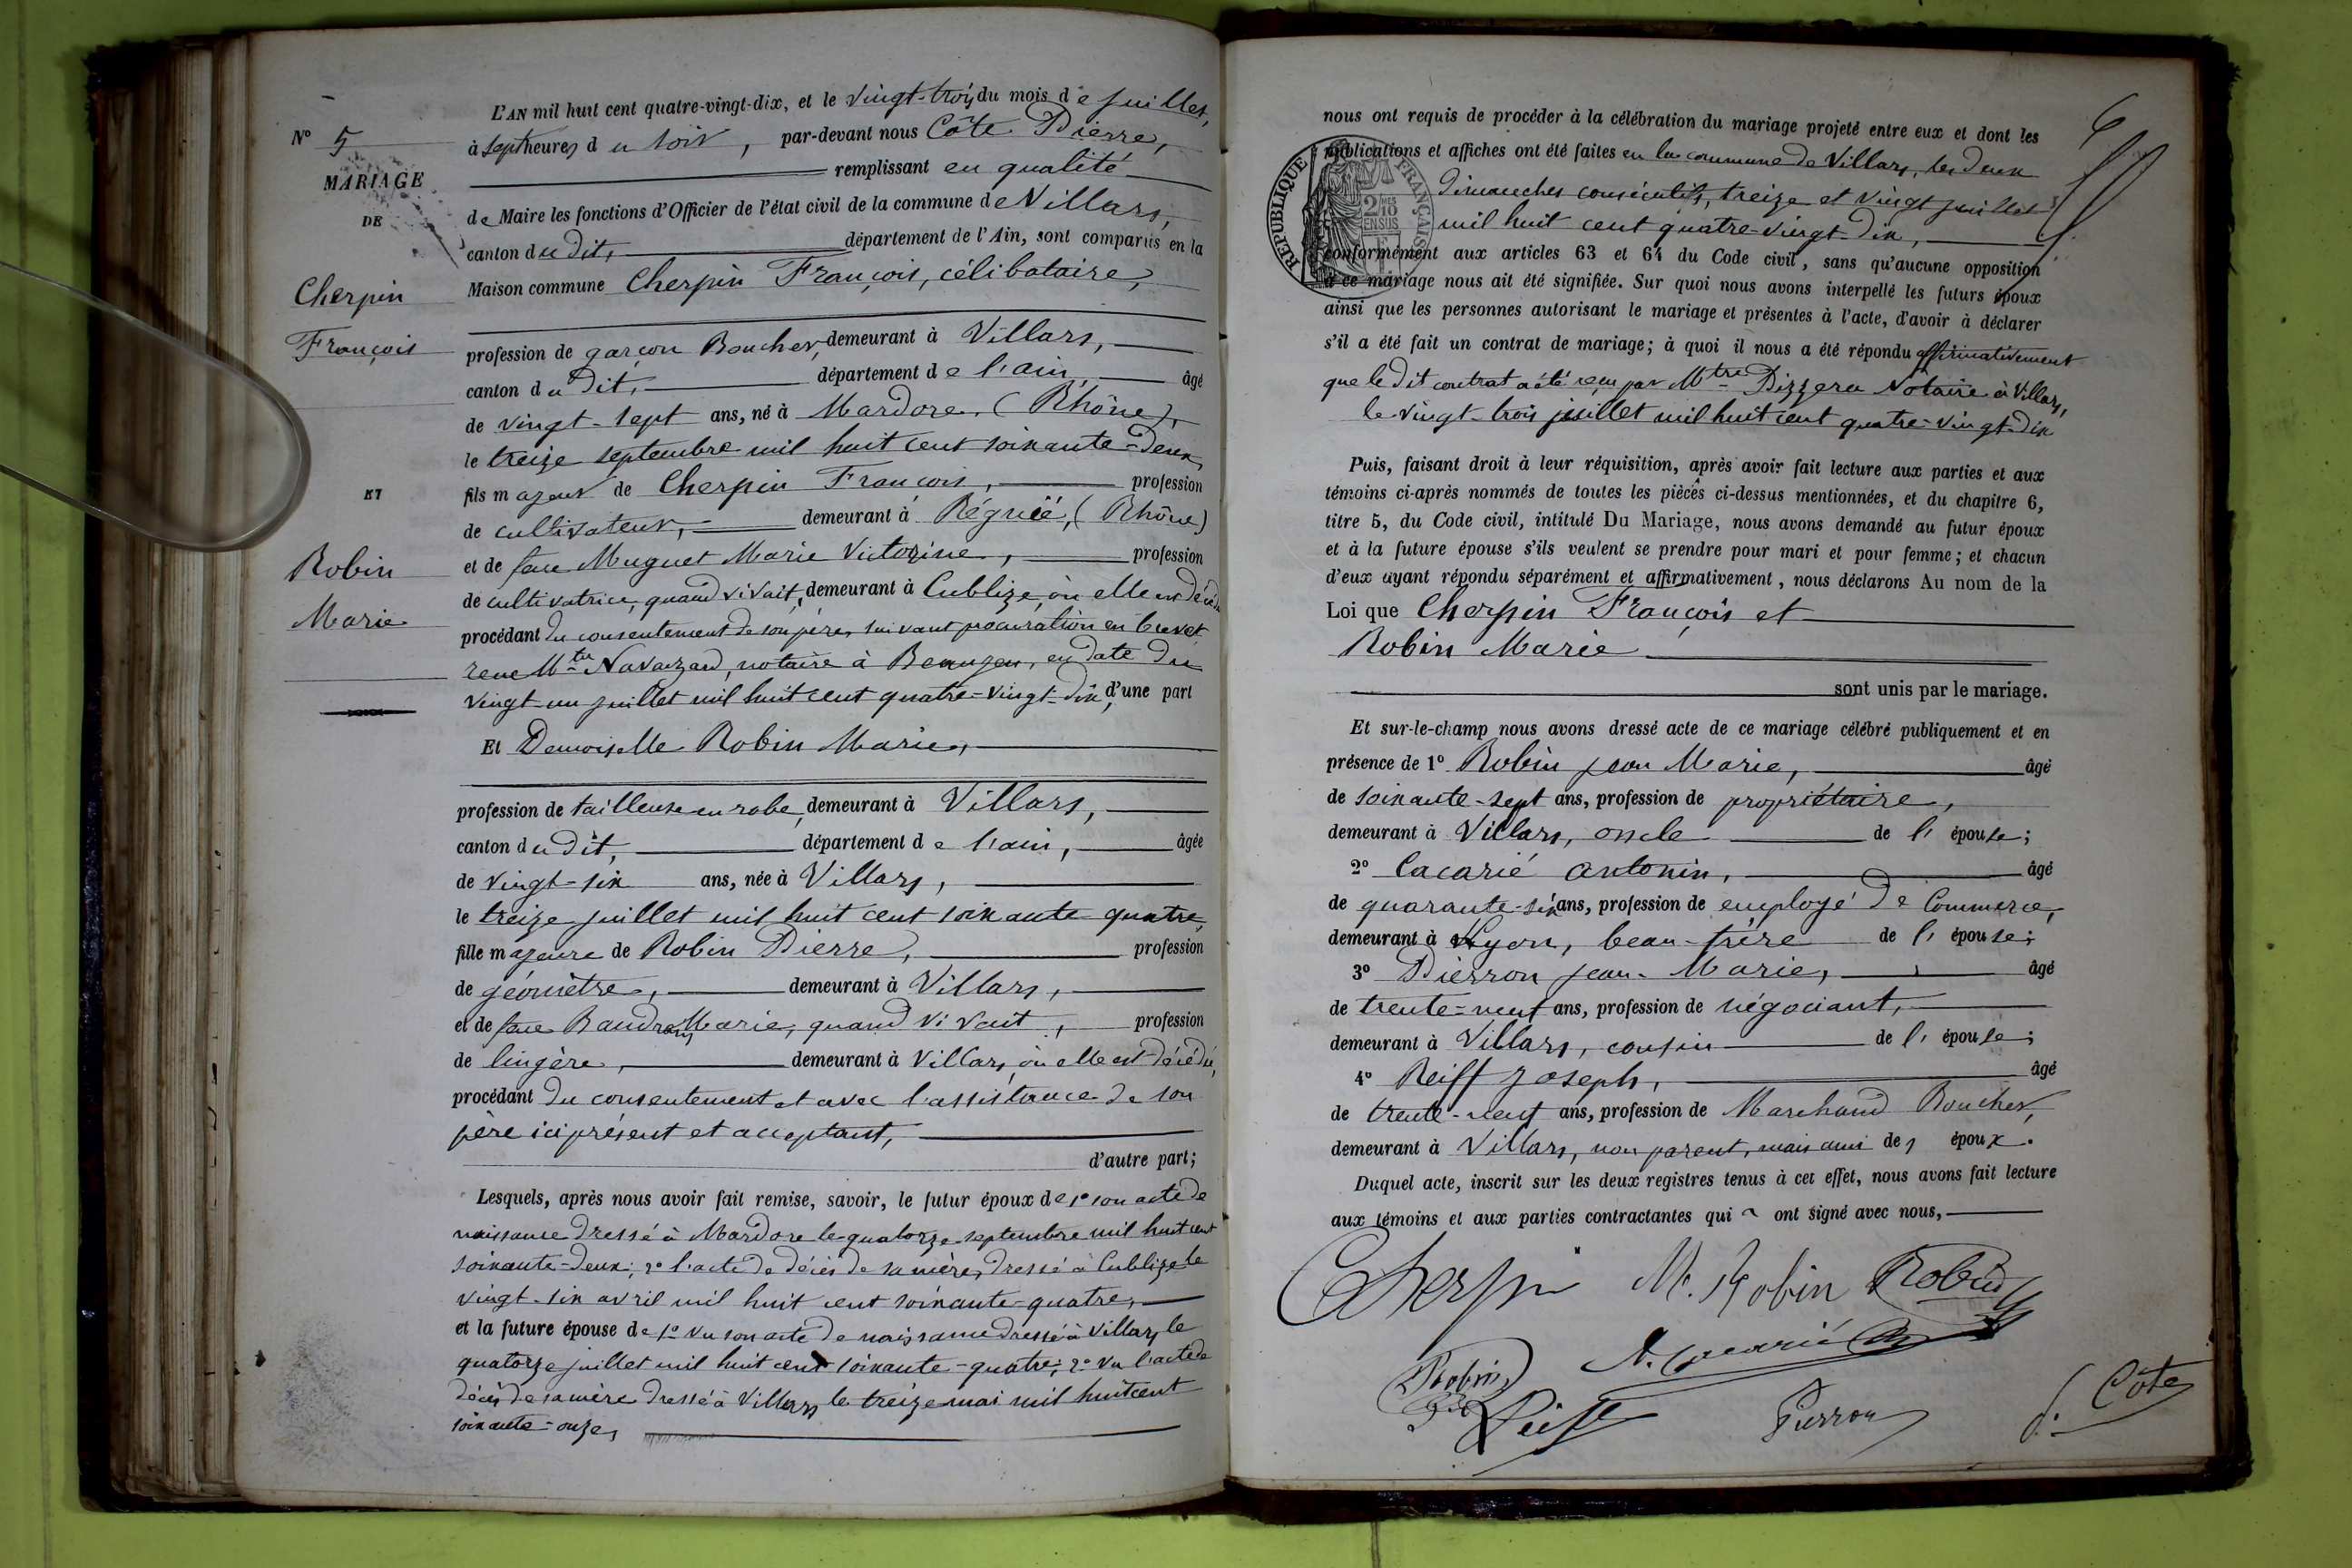 L'AN mil huit cent quatre-vingt-dix, et le vingt-trois du mois de juillet,
N° 5
à sept heures du soir, par-devant nous Côte Pierre,
remplissant en qualité
MARIAGE
DE
de Maire les fonctions d'Officier de l'état civil de la commune de Villars,
canton dudit, département de l'Ain, sont comparus en la
Cherpin
Maison commune Cherpin François, célibataire,
François
profession de garçon Boucher, demeurant à Villars,
canton dudit, département de l'ain, âgé
de vingt-sept ans, né à Mardore, (Rhône),
le treize septembre mil huit cent soixante-deux,
ET
fils majeur de Cherpin François, profession
de cultivateur, demeurant à Régnié, (Rhône)
Robin
et de feue Muguet Marie Victorine, profession
de cultivatrice, quand vivait, demeurant à Cublize, où elle est décédée
Marie
procédant du consentement de son père, suivant procuration en brevet
reçue Mtre Navarzard, notaire à Beaujeu, en date du
vingt-un juillet mil huit cent quatre-vingt-dix, d'une part
Et Demoiselle Robin Marie,
profession de tailleuse en robe, demeurant à Villars,
canton dudit, département de l'ain, âgée
de vingt-six ans, née à Villars,
le treize juillet mil huit cent soixante quatre,
fille majeure de Robin Pierre, profession
de géomètre, demeurant à Villars,
et de feue Baudrand Marie, quand vivait, profession
de lingère, demeurant à Villars, où elle est décédée,
procédant du consentement et avec l'assistance de son
père ici présent et acceptant,
d'autre part;
Lesquels, après nous avoir fait remise, savoir, le futur époux de 1° son acte de
naissance dressé à Mardore le quatorze septembre mil huit cent
soixante-deux; 2° l'acte de décès de sa mère, dressé à Cublize le
vingt-six avril mil huit cent soixante-quatre,
et la future épouse de 1° Vu son acte de naissance dressé à Villars le
quatorze juillet mil huit cent soixante-quatre; 2° Vu l'acte de
décès de sa mère dressé à Villars le treize mai mil huit cent
soixante-onze,
6
nous ont requis de procéder à la célébration du mariage projeté entre eux et dont les
publications et affiches ont été faites en la commune de Villars, les deux
dimanches consécutifs, treize et vingt juillet
mil huit cent quatre-vingt-dix,
RÉPUBLIQUE FRANÇAISE
2/10 EN SUS
conformément aux articles 63 et 64 du Code civil, sans qu'aucune opposition
à ce mariage nous ait été signifiée. Sur quoi nous avons interpellé les futurs époux
ainsi que les personnes autorisant le mariage et présentes à l'acte, d'avoir à déclarer
s'il a été fait un contrat de mariage; à quoi il nous a été répondu affirmativement
que le dit contrat a été reçu par Mtre Pizzera Notaire à Villars,
le vingt-trois juillet mil huit cent quatre-vingt-dix
Puis, faisant droit à leur réquisition, après avoir fait lecture aux parties et aux
témoins ci-après nommés de toutes les pièces ci-dessus mentionnées, et du chapitre 6,
titre 5, du Code civil, intitulé Du Mariage, nous avons demandé au futur époux
et à la future épouse s'ils veulent se prendre pour mari et pour femme; et chacun
d'eux ayant répondu séparément et affirmativement, nous déclarons Au nom de la
Loi que Cherpin François et
Robin Marie
sont unis par le mariage.
Et sur-le-champ nous avons dressé acte de ce mariage célébré publiquement et en
présence de 1° Robin Jean Marie, âgé
de soixante-sept ans, profession de propriétaire,
demeurant à Villars, oncle de l'épouse;
2° Cacarié Antonin, âgé
de quarante-six ans, profession de employé de Commerce,
demeurant à Lyon, beau-frère de l'épouse;
3° Pierron Jean-Marie, âgé
de trente-neuf ans, profession de négociant,
demeurant à Villars, cousin de l'épouse;
4° Reiff Joseph, âgé
de trente-neuf ans, profession de Marchand Boucher,
demeurant à Villars, non parent, mais ami des époux.
Duquel acte, inscrit sur les deux registres tenus à cet effet, nous avons fait lecture
aux témoins et aux parties contractantes qui ont signé avec nous,
Cherpin M. Robin Robin
Robin A. Cacarié
Reiff Pierron P. Côte